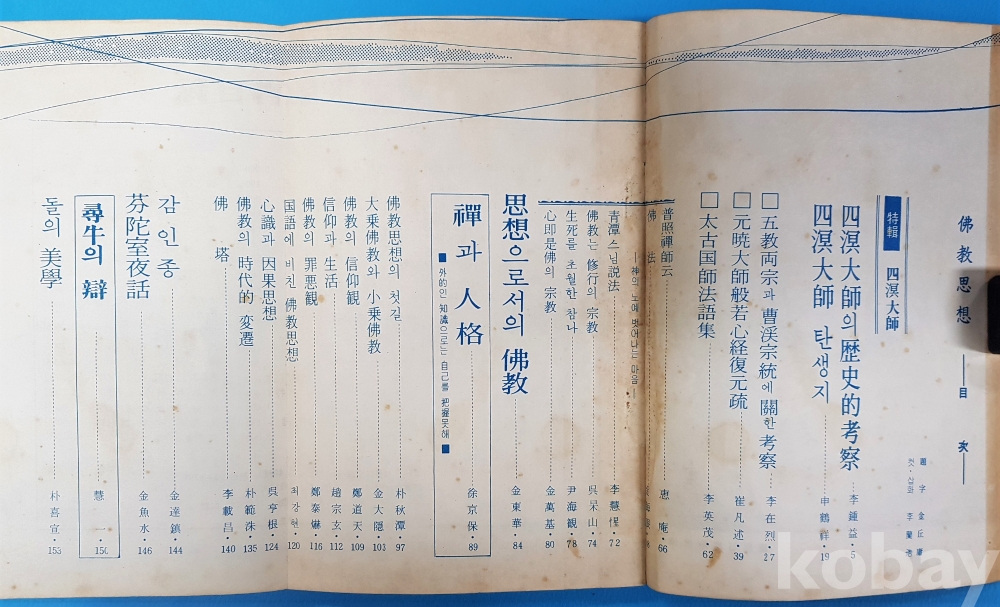 佛教思想 ――目 次――
題 字 金 丘
컷·삽화 李
特輯 四溟大師
四溟大師의 歷史的考察 李鍾益·5
四溟大師 탄생지 申鶴祥·19
□五教両宗과 曹渓宗統에 關한 考察 李在烈·27
□元暁大師般若心経復元疏 崔凡述·39
□太古国師法語集 李英茂·62
普照禪師云 恵 庵·66
佛 法
―神의 노예 벗어나는 마음―
青潭스님説法 李慧惺·72
佛教는 修行의 宗教 吳杲山·74
生死를 초월한 참나 尹海観·78
心即是佛의 宗教 金萬基·80
思想으로서의 佛教 金東華·84
禪과 人格 徐京保·89
■外的인 知識으로는 自己를 把握못해■
佛教思想의 첫길 朴秋潭·97
大乗佛教와 小乗佛教 金大隠·103
佛教의 信仰観 鄭道天·109
信仰과 生活 趙宗玄·112
佛教의 罪悪観 鄭泰爀·116
国語에 비친 佛教思想 최강현·120
心識과 因果思想 吳亨根·124
佛教의 時代的 変遷 朴範洙·135
佛 塔 李載昌·140
감인종 金達鎮·144
芬陀室夜話 金魚水·146
尋牛의 辯 慧 一·150
돌의 美學 朴喜宣·153
kobay